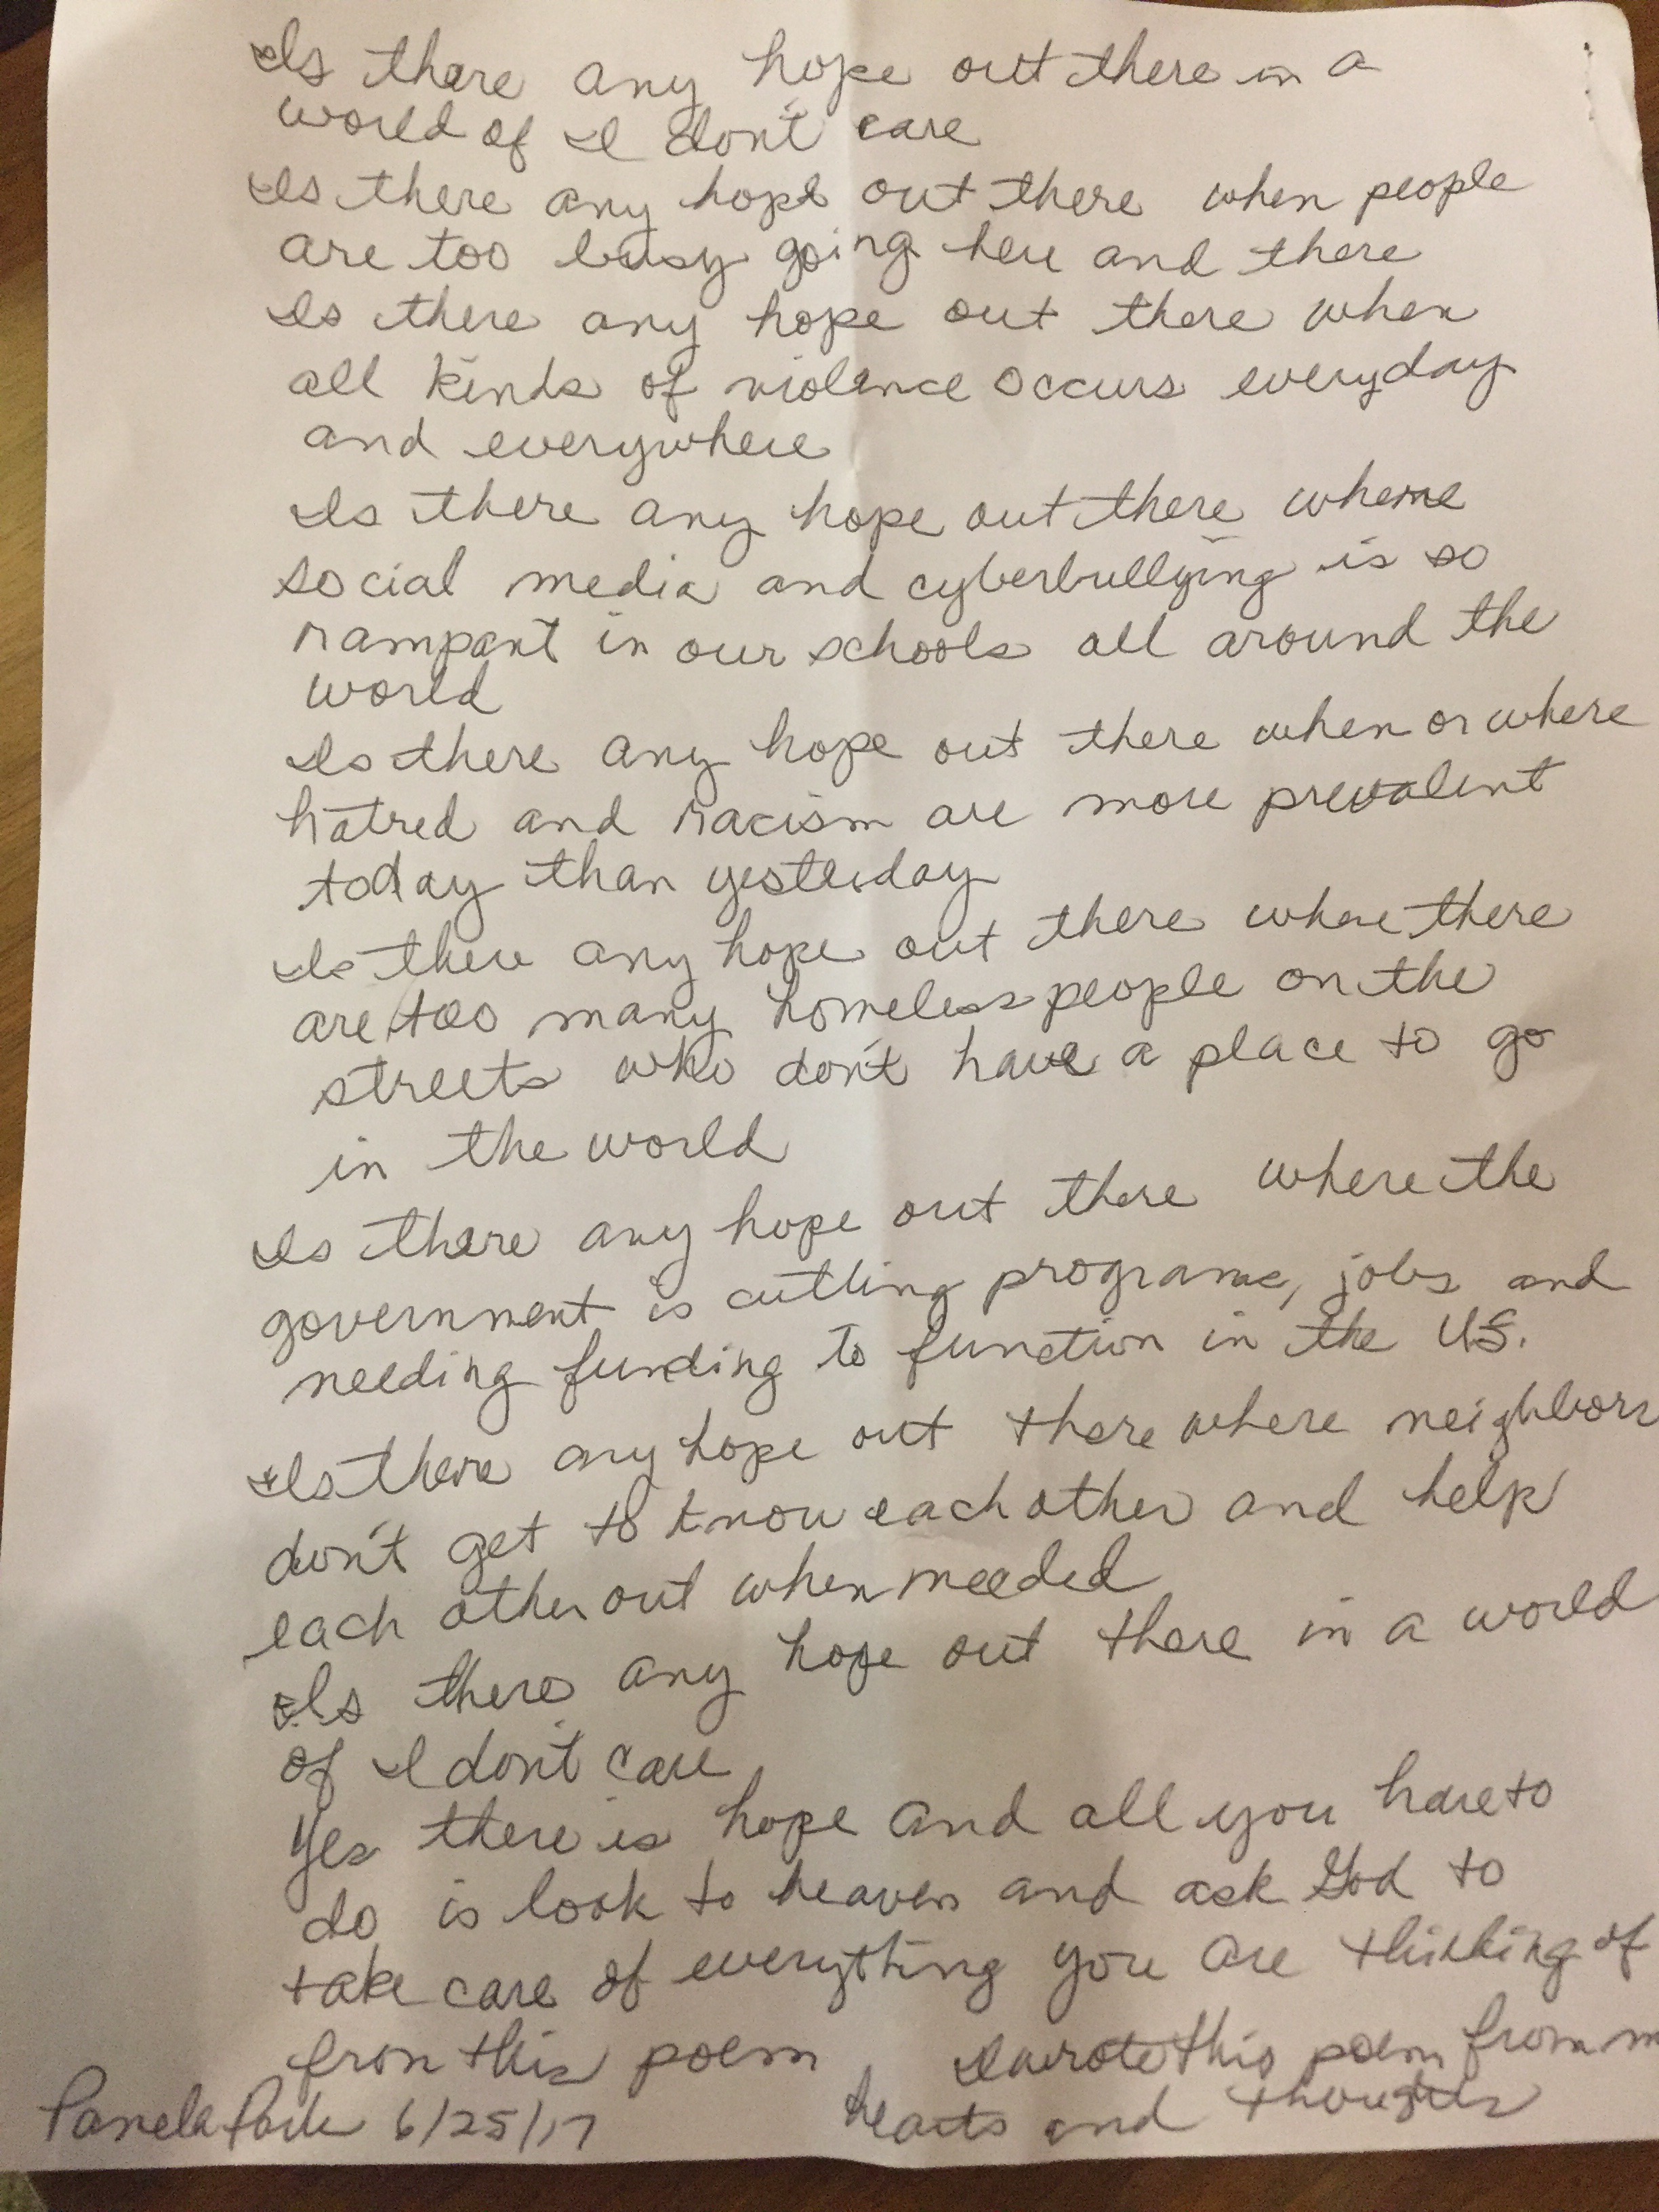 Is there any hope out there in a
world of I don't care
Is there any hope out there when people
are too busy going here and there
Is there any hope out there when
all kinds of violence occurs everyday
and everywhere
Is there any hope out there where
social media and cyberbullying is so
rampant in our schools all around the
world
Is there any hope out there when or where
hatred and racism are more prevalent
today than yesterday
Is there any hope out there where there
are too many homeless people on the
streets who don't have a place to go
in the world
Is there any hope out there where the
government is cutting programs, jobs and
needing funding to function in the U.S.
Is there any hope out there where neighbors
don't get to know each other and help
each other out when needed
Is there any hope out there in a world
of I don't care
Yes there is hope and all you have to
do is look to heaven and ask God to
take care of everything you are thinking of
from this poem
I wrote this poem from
hearts and thoughts
Pamela 6/25/17